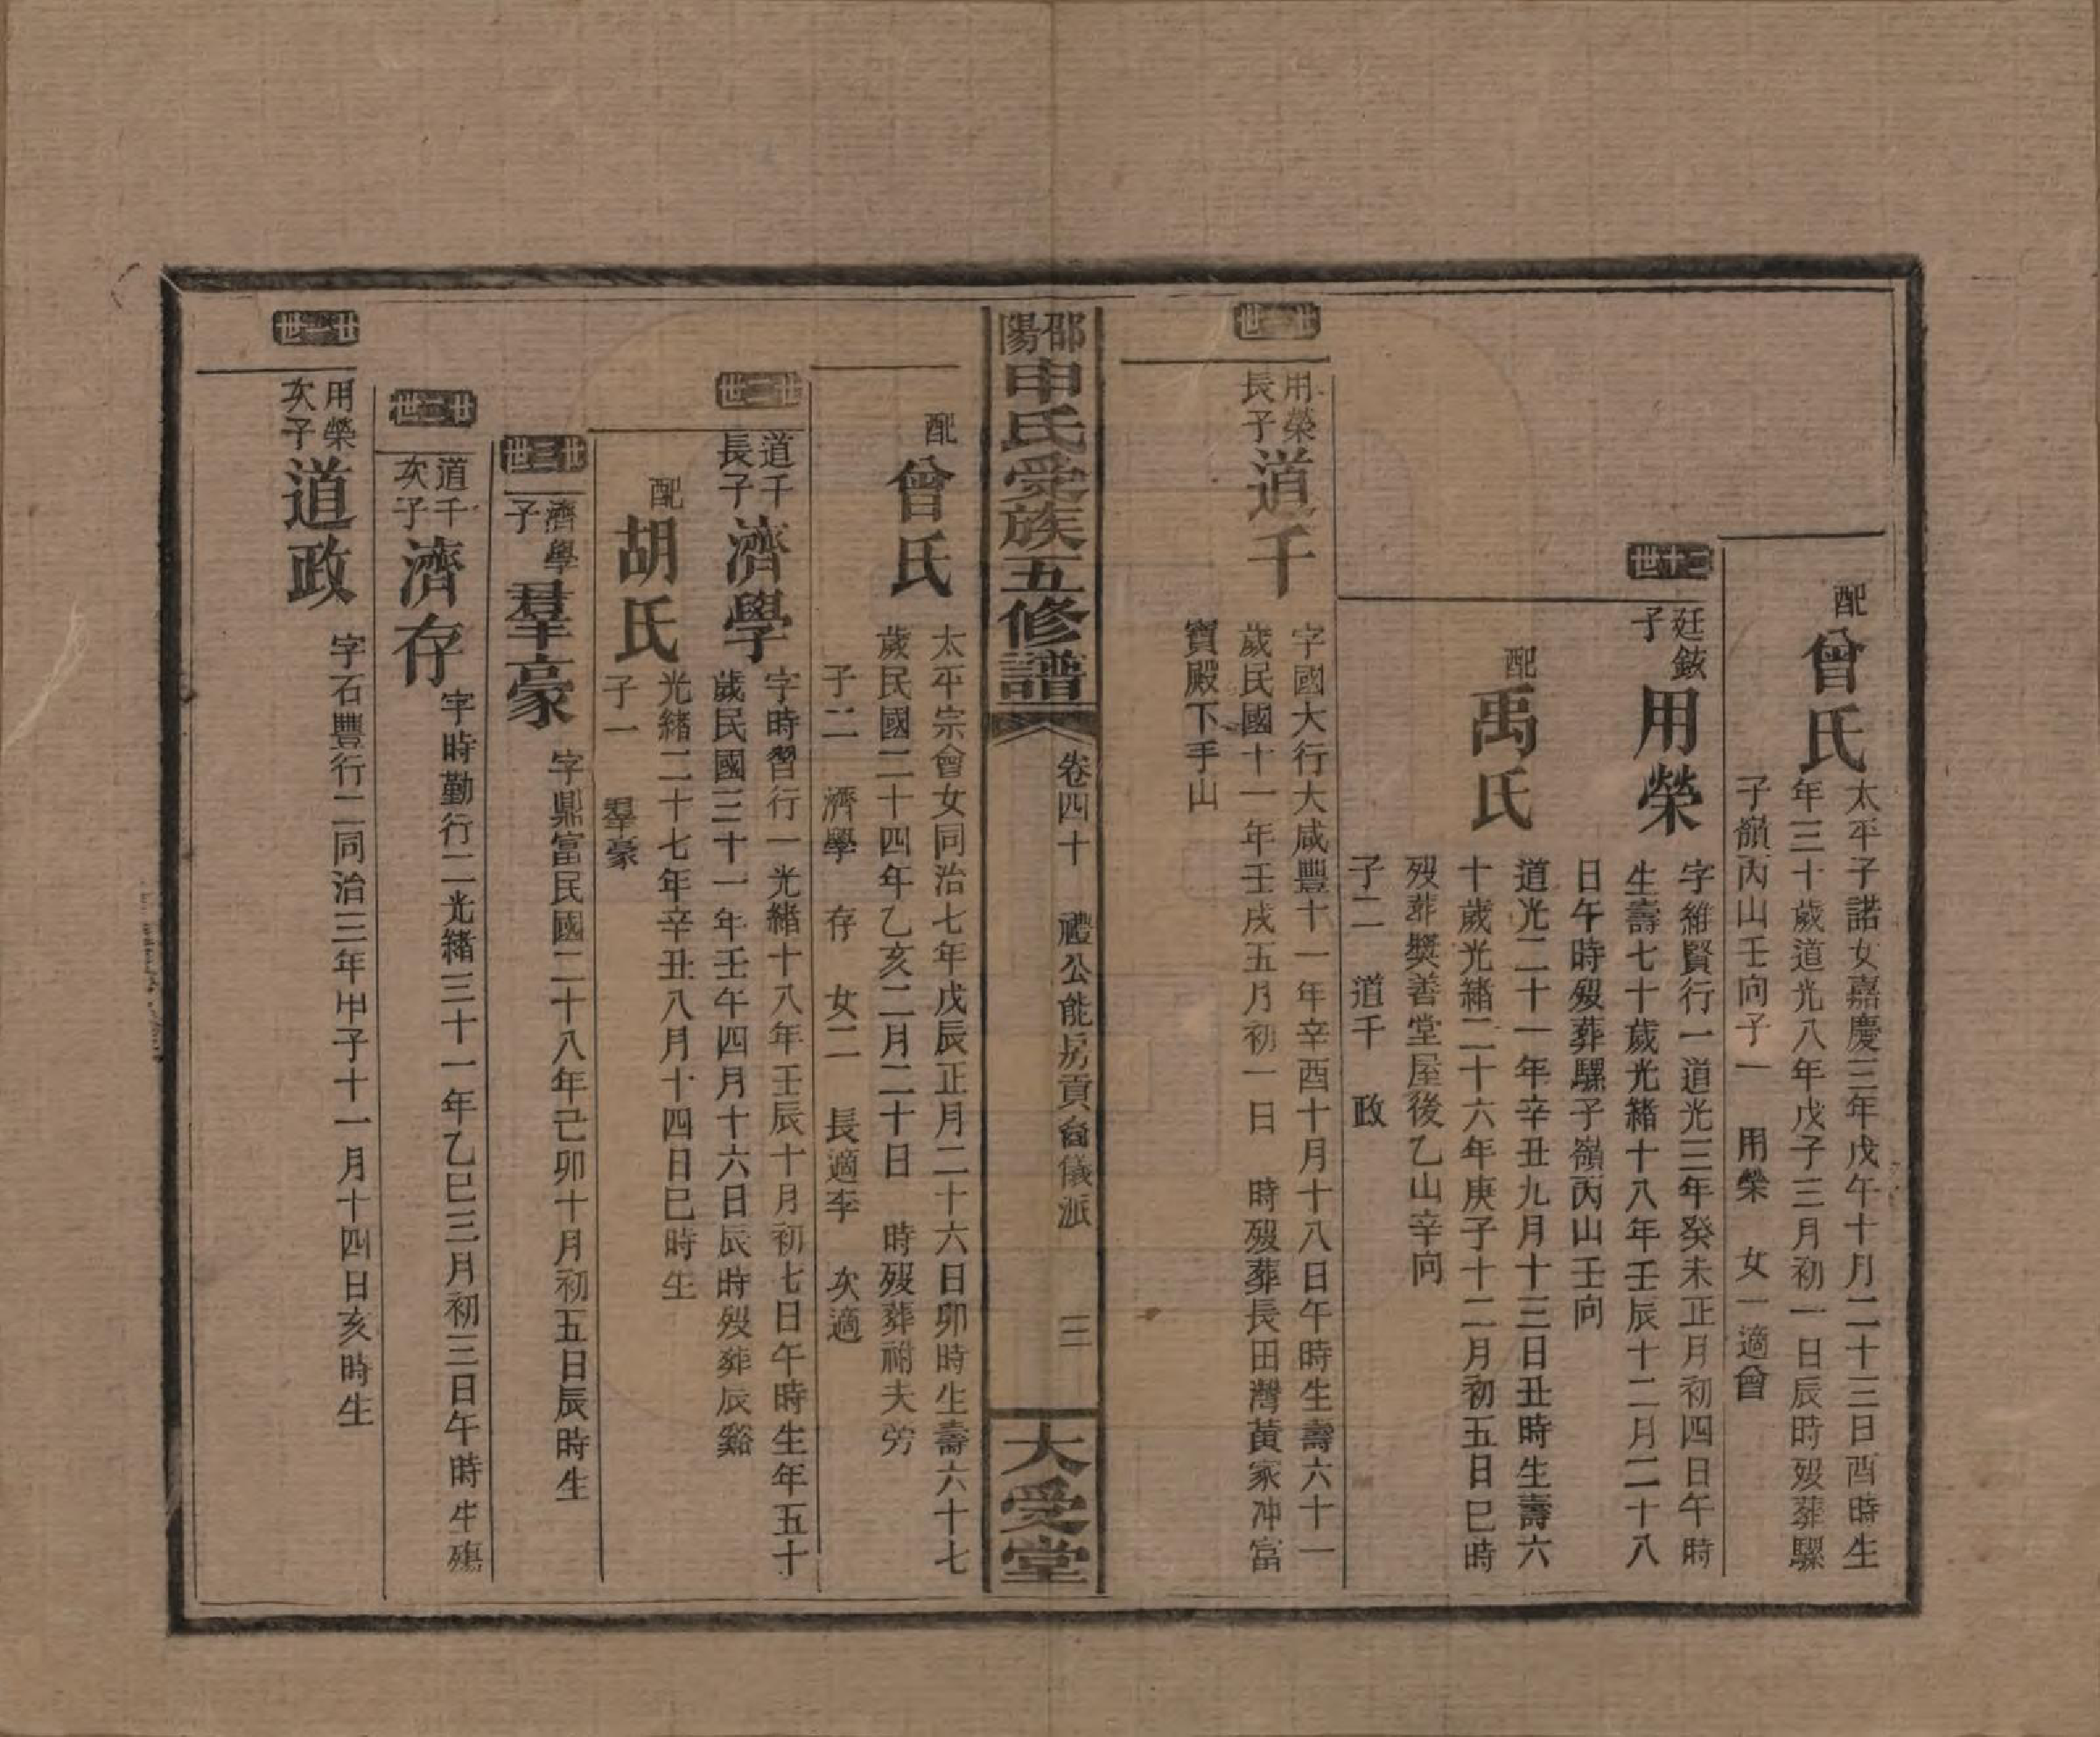 配曾氏
太平子諾女嘉慶三年戊午十月二十三日酉時生
年三十歲道光八年戊子三月初一日辰時歿葬騾
子嶺丙山壬向子一 用榮 女一適曾
三十世
廷鉉
子
用榮
字維賢行一道光三年癸未正月初四日午時
生壽七十歲光緒十八年壬辰十二月二十八
日午時歿葬騾子嶺丙山壬向
配禹氏
道光二十一年辛丑九月十三日丑時生壽六
十歲光緒二十六年庚子十二月初五日巳時
歿葬獎善堂屋後乙山辛向
子二 道千 政
卅一世
用榮
長子
道千
字國大行大咸豐十一年辛酉十月十八日午時生壽六十一
歲民國十一年壬戌五月初一日 時歿葬長田灣黃家冲富
寶殿下手山
邵陽申氏受族五修譜
卷四十 禮公能房貢裔儀派 三
大受堂
配曾氏
太平宗會女同治七年戊辰正月二十六日卯時生壽六十七
歲民國二十四年乙亥二月二十日 時歿葬祔夫旁
子二 濟學 存 女二 長適李 次適
卅二世
道千
長子
濟學
字時習行一光緒十八年壬辰十月初七日午時生年五十
歲民國三十一年壬午四月十六日辰時歿葬辰谿
配胡氏
光緒二十七年辛丑八月十四日巳時生
子一 羣豪
卅三世
濟學
子
羣豪
字鼎富民國二十八年己卯十月初五日辰時生
卅二世
道千
次子
濟存
字時勤行二光緒三十一年乙巳三月初三日午時生殤
卅一世
用榮
次子
道政
字石豐行二同治三年甲子十一月十四日亥時生